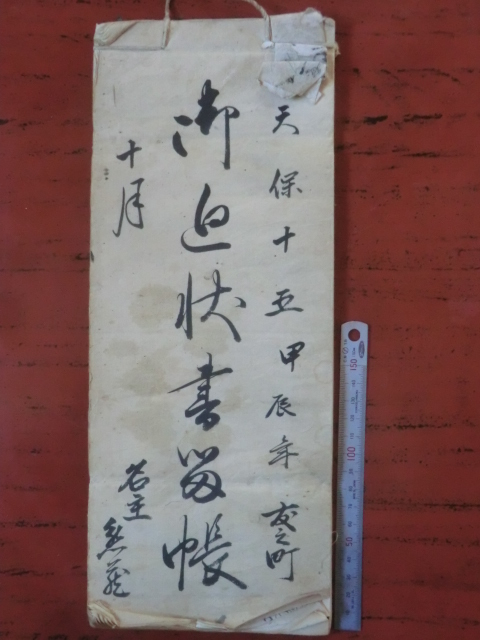 天保十五甲辰年 之町
御廻状書留帳
十月
名主
150
100
50